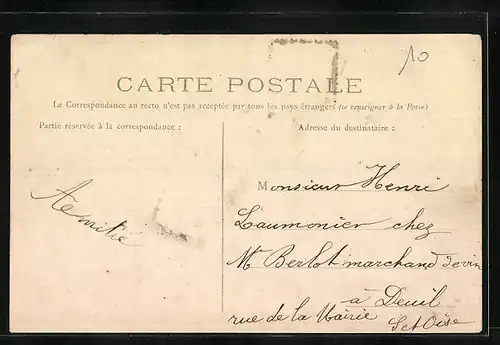 10
CARTE POSTALE
La Correspondance au recto n'est pas acceptée par tous les pays étrangers (se renseigner à la Poste)
Partie réservée à la correspondance :
Adresse du destinataire :
Monsieur Henri
Laumonier chez
Mr Berlot marchand de vin
à Deuil
rue de la Mairie
Set Oise